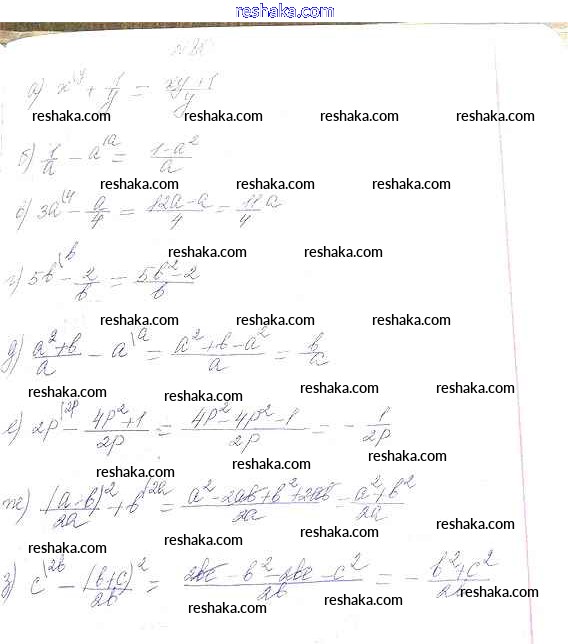 reshaka.com
а) x^{\y} + 1/y = (xy+1)/y
reshaka.com reshaka.com reshaka.com
б) 1/a - a^{\a} = (1-a²)/a
reshaka.com reshaka.com reshaka.com
в) 3a^{\4} - a/4 = (12a-a)/4 = 11/4 a
reshaka.com reshaka.com reshaka.com
г) 5b^{\b} - 2/b = (5b²-2)/b
reshaka.com reshaka.com reshaka.com
д) (a²+b)/a - a^{\a} = (a²+b-a²)/a = b/a
reshaka.com reshaka.com reshaka.com
е) 2p^{\2p} - (4p²+1)/2p = (4p²-4p²-1)/2p = - 1/2p
reshaka.com reshaka.com reshaka.com
ж) (a-b)²/2a + b^{\2a} = (a²-2ab+b²+2ab)/2a = (a²+b²)/2a
reshaka.com reshaka.com reshaka.com
з) c^{\2b} - (b+c)²/2b = (2bc-b²-2bc-c²)/2b = - (b²+c²)/2b
reshaka.com reshaka.com reshaka.com